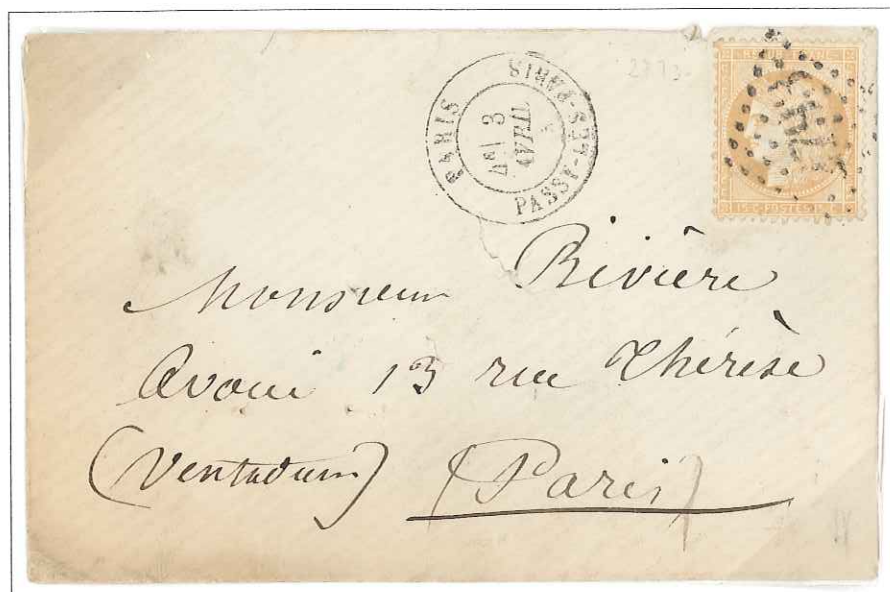 PARIS
PASSY-LES-PARIS
3
AVRIL
2773
REPUB. FRANC.
15 C. POSTES 15 C.
Monsieur Rivière
Avoué 13 rue Thérèse
(Ventadour) (Paris)